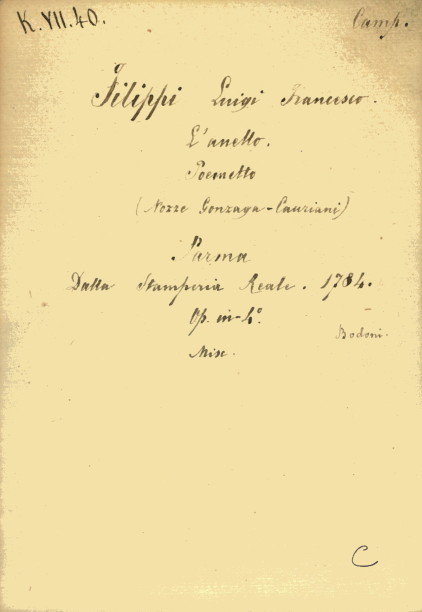 K.VII.40.
Camp.
Filippi Luigi Francesco.
L'anello.
Poemetto
(Nozze Gonzaga-Cauriani)
Parma
Dalla Stamperia Reale. 1784.
Op. in-4º.
Bodoni.
Misc.
C